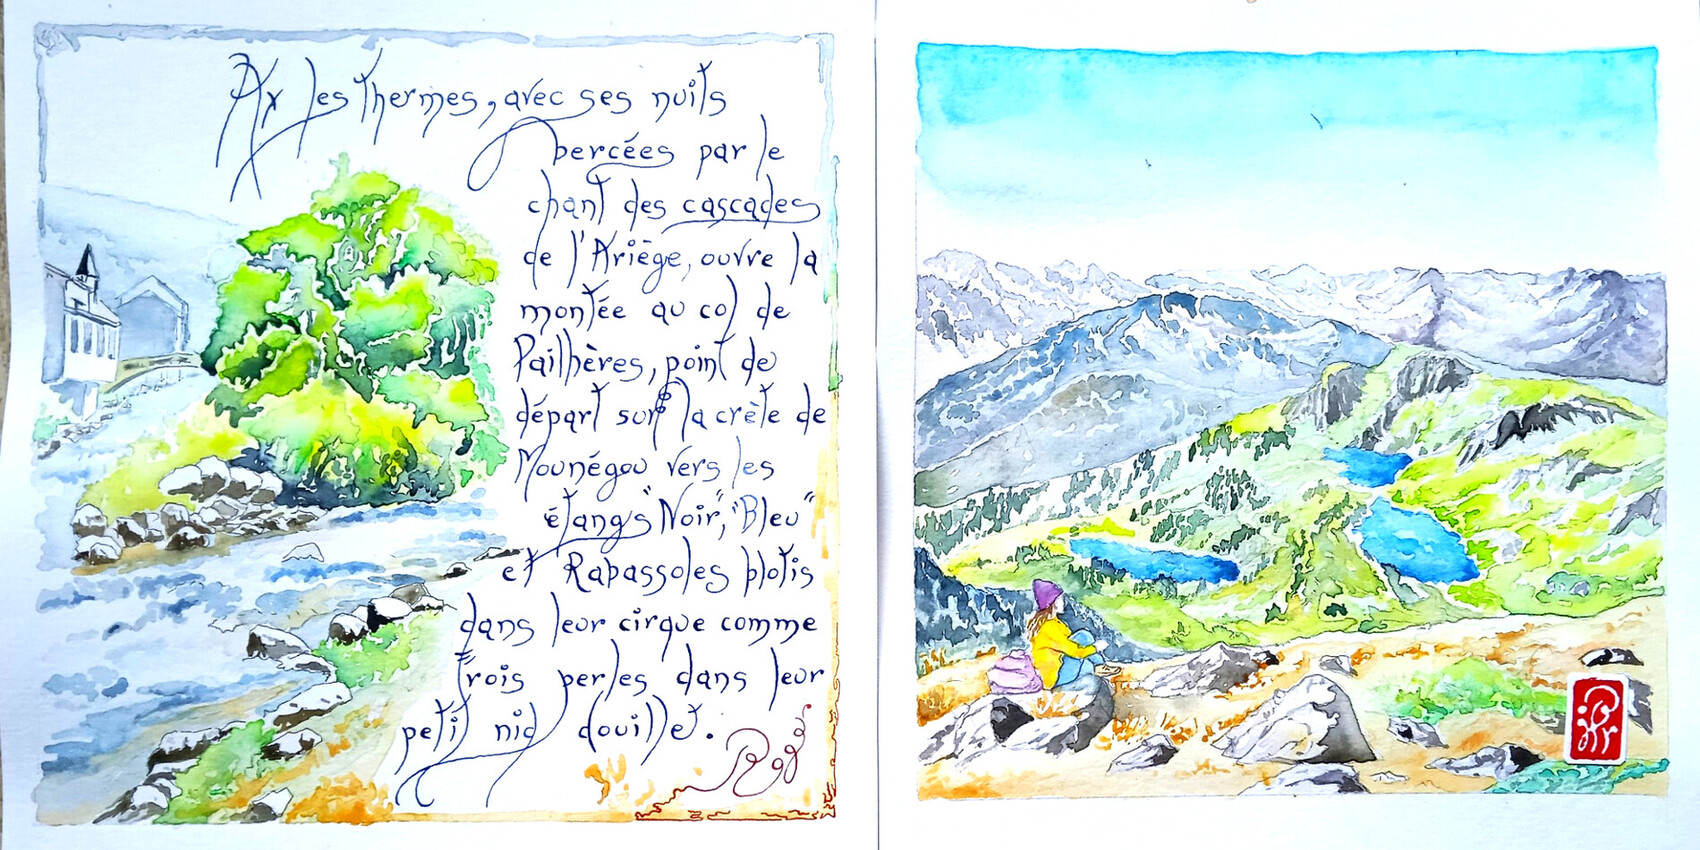 Ax les Thermes, avec ses nuits
bercées par le
chant des cascades
de l'Ariège, ouvre la
montée au col de
Pailhères, point de
départ sur la crète de
Mounégou vers les
étangs "Noir", "Bleu"
et Rabassoles blotis
dans leur cirque comme
trois perles dans leur
petit nid douillet.